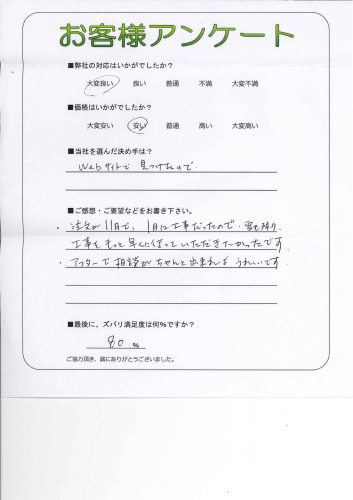 お客様アンケート
■弊社の対応はいかがでしたか?
大変良い 良い 普通 不満 大変不満
■価格はいかがでしたか?
大変安い 安い 普通 高い 大変高い
■当社を選んだ決め手は?
Webサイトで 見つけたので
■ご感想・ご要望などをお書き下さい。
・注文が11月で、1月に工事だったので
工事をもっと早くに行っていただきたかったです。
・アフターで相談がちゃんと出来れば うれしいです。
■最後に、ズバリ満足度は何%ですか?
80 %
ご協力頂き、誠にありがとうございました。